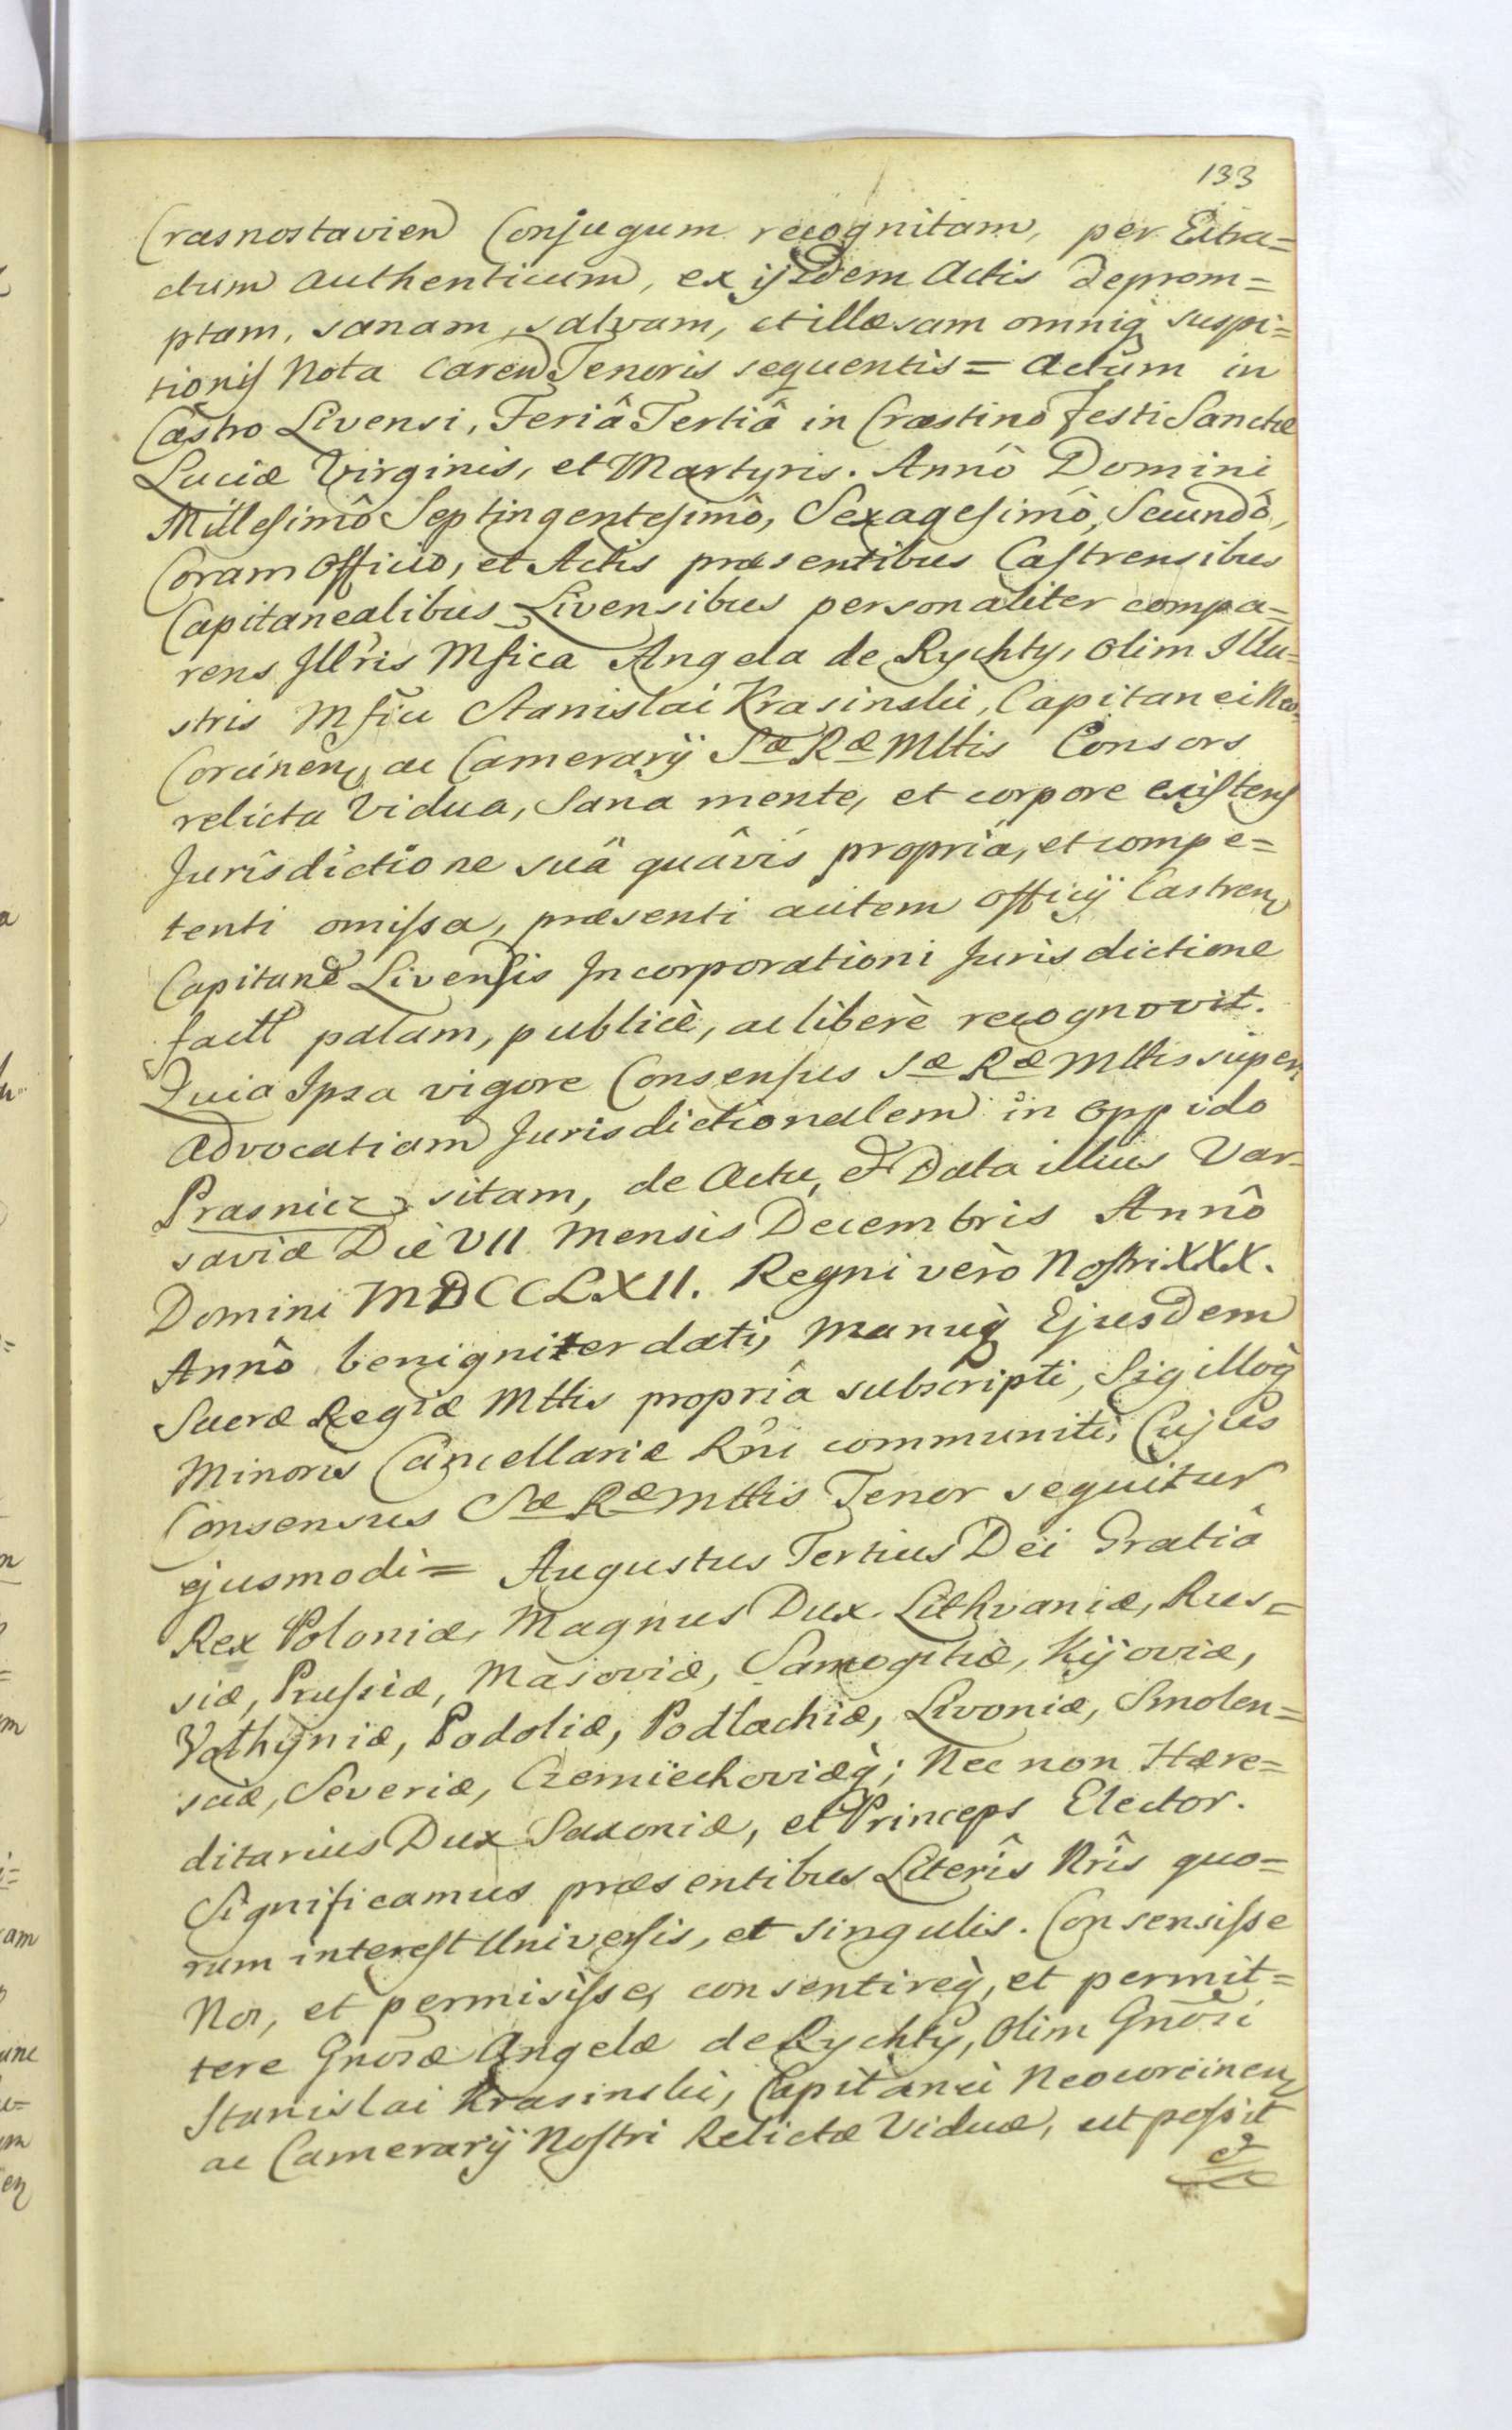 133
Crasnostavien Conjugum recognitam, per Extra=
ctum authenticum, ex ijsdem Actis deprom=
ptam, sanam, salvam, et illæsam omniq̀ suspi=
tionis Nota caren Tenoris sequentis = Actum in
Castro Livensi, Feriâ Tertiâ in Crastino Festi Sanctæ
Luciæ Virginis, et Martyris. Annô Domini
Millesimô Septingentesimô, Sexagesimô, Secundô,
Coram Officio, et Actis præsentibus Castrensibus
Capitanealibus Livensibus personaliter compa=
rens Jllris Mfica Angela de Rychty, olim Illu=
stris Mfici Stanislai Krasinski, Capitanei Neo=
Corcinen ac Camerarij Sæ Ræ Mttis Consors
relicta Vidua, Sana mente, et corpore existens
Jurisdictione suâ quâvis propriâ, et compe=
tenti omissa, præsenti autem Officij Castren
Capitanë Livensis Incorporationi Jurisdictione
factt palam, publicè, ac liberè recognovit.
Quia Ipsa vigore Consensus Sæ Ræ Mttis super
Advocatiam Jurisdictionalem in Oppido
Prasnicz sitam, de Actu, & Data illius Var=
saviæ Die VII Mensis Decembris Annô
Domini MDCCLXII. Regni vero Nostri XXX.
Annô benigniter dati, manuq̀ Ejusdem
Sacræ Regiæ Mttis propriâ subscripti, Sigilloq̀
Minoris Cancellariæ Rni communiti, Cujus
Consensus Sæ Ræ Mttis Tenor sequitur
ejusmodi = Augustus Tertius Dei Gratiâ
Rex Poloniæ, Magnus Dux Lithvaniæ, Rus=
siæ, Prussiæ, Masoviæ, Samogitiæ, Kijoviæ,
Volhyniæ, Podoliæ, Podlachiæ, Livoniæ, Smolen=
sciæ, Severiæ, Czerniechoviæq̀; Nec non Hære=
ditarius Dux Saxoniæ, et Princeps Elector.
Significamus præsentibus Literis Nris quo=
rum interest Universis, et singulis. Consensisse
Nos, et permisisse, consentireq̀, et permit=
tere Gnosæ Angelæ de Rychty, Olim Gnosi
Stanislai Krasinski, Capitanei Neocorcinen
ac Camerarij Nostri Relictæ Viduæ, ut possit
&